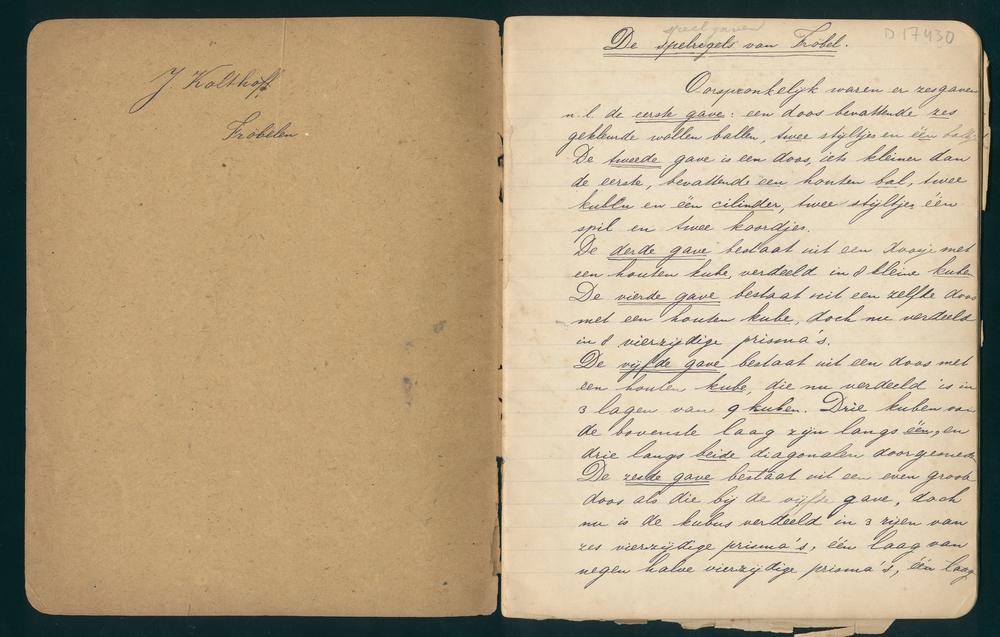 J Kolthoff
Fröbelen
speelgaven
D 17430
De spelregels van Fröbel.
Oorspronkelijk waren er zes gaven
n.l. de eerste gave: een doos bevattende zes
gekleurde wollen ballen, twee stijltjes en één balkje
De tweede gave is een doos, iets kleiner dan
de eerste, bevattende een houten bal, twee
kuben en één cilinder, twee stijltjes één
spil en twee koordjes.
De derde gave bestaat uit een doosje met
een houten kube, verdeeld in 8 kleine kuben
De vierde gave bestaat uit een zelfde doos
met een houten kube, doch nu verdeeld
in 8 vierzijdige prisma's.
De vijfde gave bestaat uit een doos met
een houten kube, die nu verdeeld is in
3 lagen van 9 kuben. Drie kuben van
de bovenste laag zijn langs één, en
drie langs beide diagonalen doorgesneden
De zesde gave bestaat uit een even groote
doos als die bij de vijfde gave, doch
nu is de kubus verdeeld in 3 rijen van
zes vierzijdige prisma's, één laag van
negen halve vierzijdige prisma's, één laag